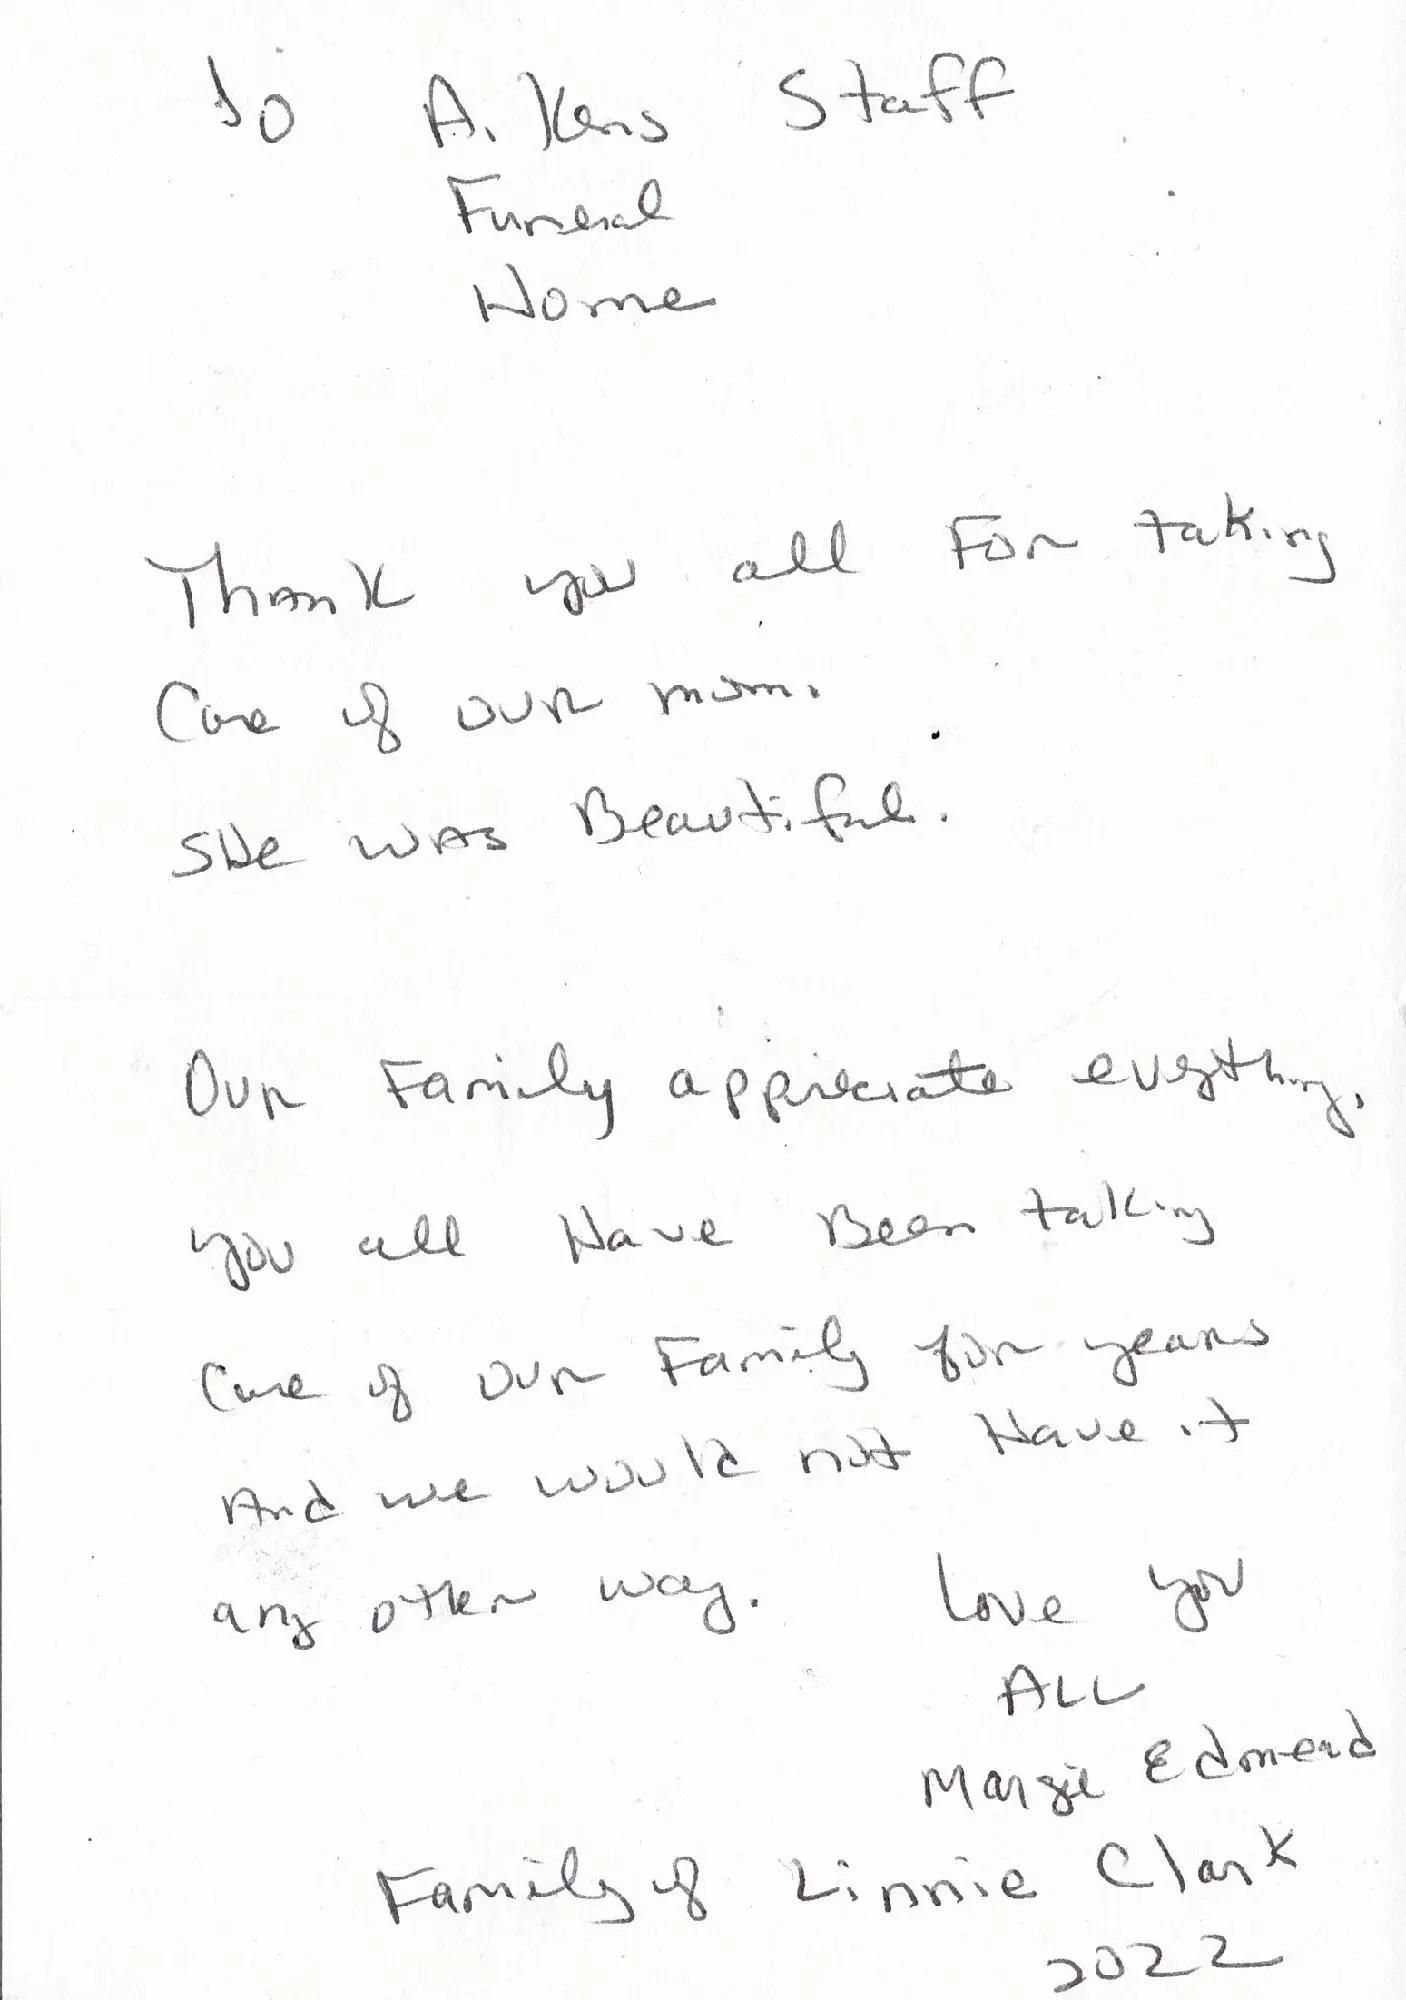 To Aikens Staff
Funeral
Home
Thank you all For taking
Care of our mom.
She was Beautiful.
Our Family appreciate everything,
you all Have Been taking
Care of our Family for years
And we would not Have it
any other way. Love you
ALL
Margie Edmend
Family of Linnie Clark
2022